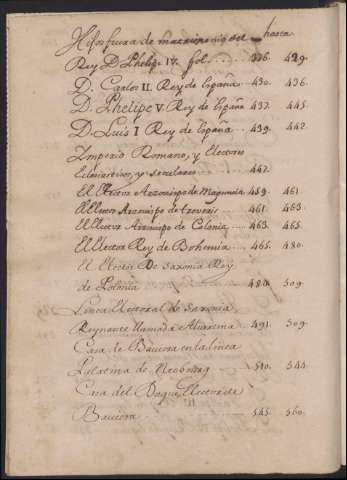 Hijos fuera de matrimonio del hasta
Rey D. Phelipe IV. fol. 376. 429.
D. Carlos II. Rey de España 430. 436.
D. Phelipe V. Rey de España 437. 445.
D. Luis I Rey de España 439. 442.
Imperio Romano, y Electores
Eclesiasticos, y seculares 447.
El Elector Arzobispo de Maguncia 459. 461.
El Elector Arzobispo de treveris 461. 463.
El Elector Arzobispo de Colonia 463. 465.
El Elector Rey de Bohemia 465. 480.
El Elector De Saxonia Rey
de Polonia 480. 509.
Linea Electoral de Saxonia
Reynante llamada Albertina 491. 509.
Casa de Baviera en la linea
Palatina de Neoburg 510. 544.
Casa del Duque Elector de
Baviera 545. 560.